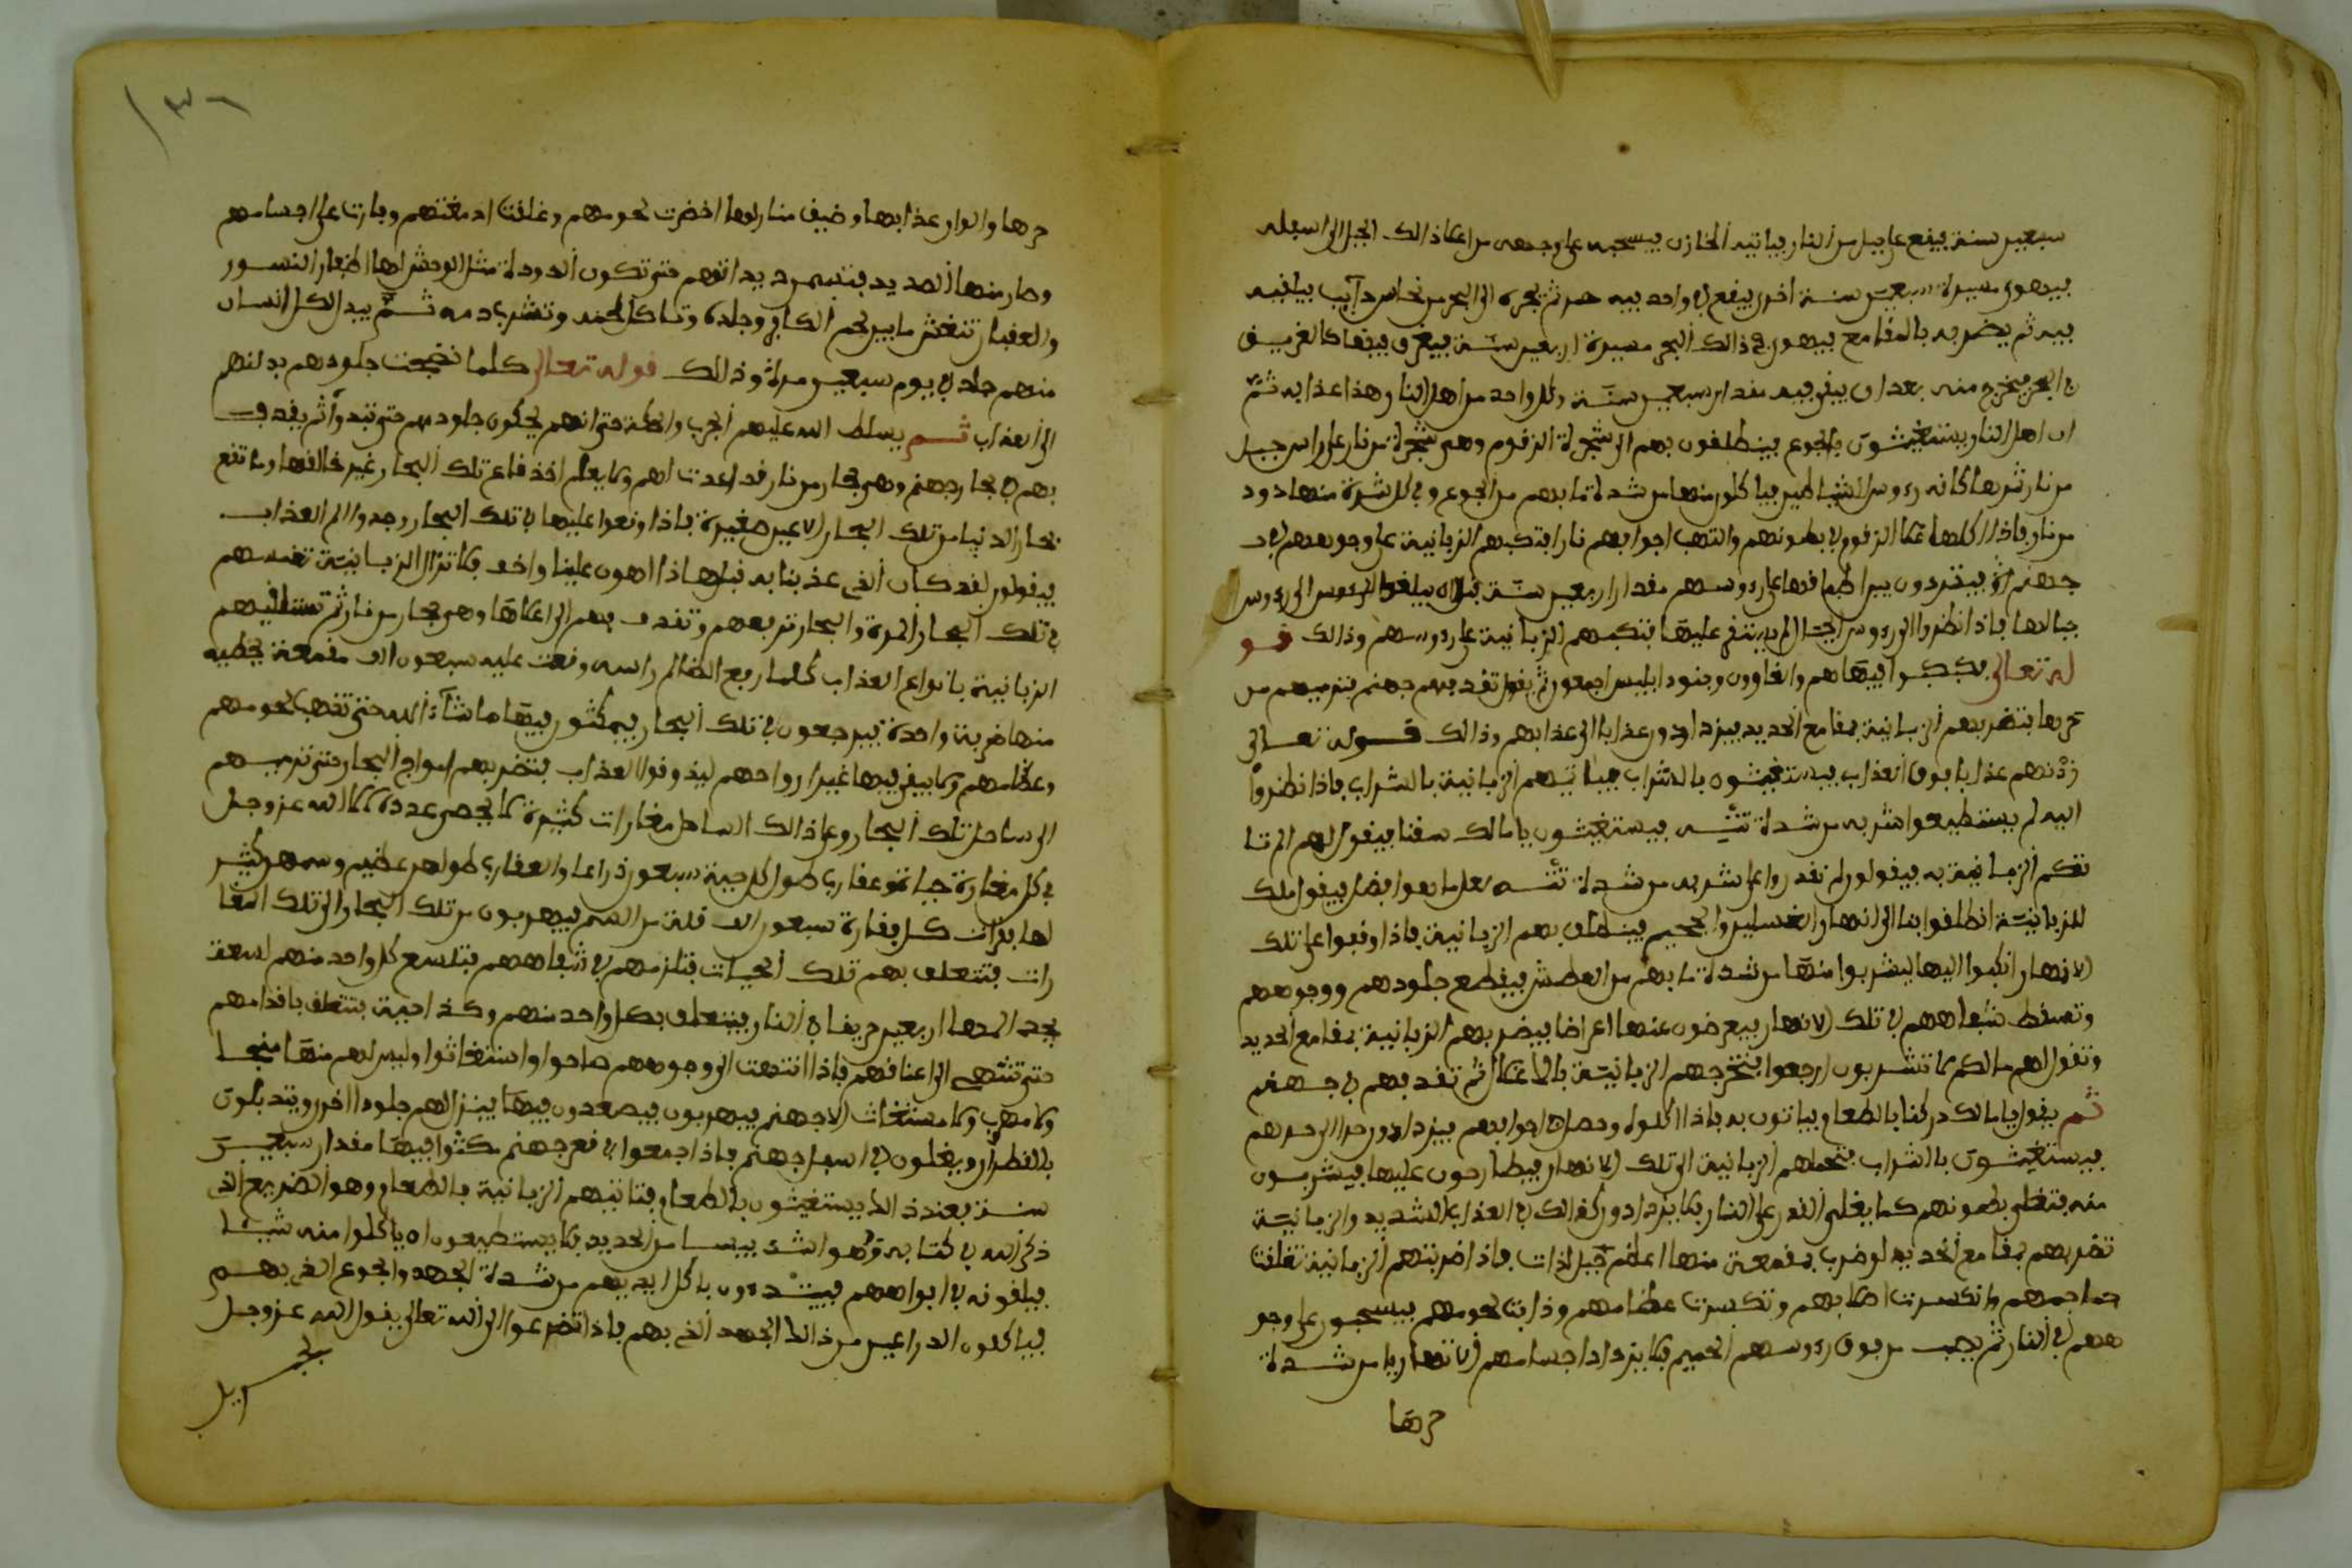 سبعين سنة فيقع على جبل من النار فياتيه الخازن فيسحبه على وجهه من اعلا ذالك الجبل الى اسفله
فيهوى مسيرة سبعين سنة اخرى فيقع فى واد فيه ثم يجره الى البحر من نحاس ذآيب فيلقيه
فيه ثم يضربه بالمقامع فيهوى فى ذالك البحر مسيرة اربعين سنة فيغرق فيه كالغريق
فى البحر فيخرج منه بعد ان يبقى فيه مقدار سبعين سنة وكل واحد من اهل النار هذا عذابه ثم
ان اهل النار يستغيثون بالجوع فينطلقون بهم الى شجرة الزقوم وهى شجرة من نار على راس جبل
من نار ثمرها كانه رءوس الشياطين فياكلون منها من شدة ما بهم من الجوع وفى كل ثمرة منها دود
من نار فاذا اكلوها غلا الزقوم فى بطونهم والتهب اجوافهم نارا فتكبهم الزبانية على وجوههم فى
جهنم على رءوسهم مقدار اربعين سنة قبل ان يبلغوا الرءوس الى رءوس
جبالها فاذا نظروا الى رءوس فتكبهم الزبانية على رءوسهم وذالك قو
له تعالى فكبكبوا فيها هم والغاوون وجنود ابليس اجمعون ثم تقذفهم جهنم فترميهم من
حرها فتضربهم الزبانية بمقامع الحديد فيزدادون عذابا الى عذابهم وذالك قوله تعالى
زدنهم عذابا فوق العذاب فيستغيثون بالشراب فياتيهم الزبانية بالشراب فاذا نظروا
اليه لم يستطيعوا شربه من شدة نتنه فيستغيثون يا مالك سقنا فيقول لهم الم تا
تكم الزبانية به فيقولون لم نقدر على شربه من شدة نتنه فيقول ملك
للزبانية انطلقوا بنا الى انهار الغسلين والحميم فينطلق بهم الزبانية فاذا وقفوا على تلك
الانهار انكبوا اليها ليشربوا منها من شدة ما بهم من العطش فيقطع جلودهم ووجوههم
وتسقط شفاههم فى تلك الانهار فيعرضون عنها اعراضا فيضربهم الزبانية بمقامع الحديد
وتقول لهم مالكم لا تشربون ارجعوا فتخرجهم الزبانية ثم تقذفهم فى جهنم
ثم يقول يا مالك دركنا بالطعام فياتون به فاذا اكلوه وحصل فى اجوافهم فيزدادون حرا الى حرهم
فيستغيثون بالشراب فتحملهم الزبانية الى تلك الانهار فيطارحون عليها فيشربون
منه فتغلى بطونهم كما يغلى القدر على النار فلا يزدادون كذالك فى العذاب الشديد والزبانية
تضربهم بمقامع الحديد لو ضرب بمقمعة منها اعظم جبل لذاب فاذا ضربتهم الزبانية تفلقت
جماجمهم وانكسرت اصلابهم وتكسرت عظامهم وذابت لحومهم فيسحبون على وجو
ههم فى النار ثم يصب من فوق رءوسهم الحميم فلا يزداد اجسامهم من شدة
حرها
١٣٦
حرها والوان عذابها وضيق منازلها اخضرت لحومهم وغلقت ادمغتهم وفارت على اجسامهم
وصار منها الصديد حتى تكون الدودة مثل الوحش لها اظفار النسور
والعقبان تنغش ما بين لحم الكافر وجلده وتاكل لحمه وتشرب دمه ثم يبدل لكل انسان
منهم جلد فى يوم سبعين مرة وذالك قوله تعالى كلما نضجت جلودهم بدلنهم
الى العذاب ثم يسلط الله عليهم الجرب والحكة حتى انهم يحكون جلودهم حتى تبدوا ثم يقذف
بهم فى بحار جهنم وهى بحار من نار قد اعدت لهم ولا يعلم تلك البحار غير خالقها وما تقع
بحار الدنيا من تلك البحار الا عين صغيرة فاذا وقعوا عليها فى تلك البحار وجدوا الم العذاب
فيقولون لقد كان الذى عذبنا به قبل هاذا اهون علينا واخف فلا تزال الزبانية تغمسهم
فى تلك البحار المرة والبحار ترفعهم وتقذف بهم الى اعلاها وهى بحار من نار ثم تستلقيهم
الزبانية بانواع العذاب كلما رفع الظالم راسه وقعت عليه سبعون الف مقمعة تخطيه
منها ضربة واحدة فيرجعون فى تلك البحار فيمكثون فيها ما شآء الله حتى تذهب لحومهم
وعظامهم ولا يبقى فيها غير ارواحهم ليذوقوا العذاب فتضربهم امواج البحار حتى ترميهم
الى ساحل تلك البحار وعلى ذالك الساحل مغارات كثيرة لا يحصى عددها الا الله عز وجل
فى كل مغارة حيات وعقارب طول كل حية سبعون ذراعا والعقارب طولهن عظيم وسمهن كثير
لها كل فقارة سبعون الف قلة من السم فيهربون من تلك البحار الى تلك المغا
رات فتتعلق بهم تلك الحيات فتلزمهم فى شفاههم فتلسع كل واحد منهم لسعة
يجد المها اربعين خريفا فى النار فيتعلق بكل واحد منهم وكذا حية فتتعلق باقدامهم
حتى تنتهى الى اعناقهم فاذا انتهت الى وجوههم صاحوا واستغاثوا وليس لهم منها منجا
ولا مهرب ولا مستغاث الا جهنم فيهربون فيصعدون فيها فينزل لهم جلودا اخرى ويتدبلون
بالقطران ويغلون فى اسفل جهنم فاذا اجمعوا فى قعر جهنم مكثوا فيها مقدار سبعين
سنة فعند ذالك يستغيثون بالطعام فتاتيهم الزبانية بالطعام وهو الضريع الذى
ذكر الله فى كتابه وهو اشد يبسا من الحديد فلا يستطيعون ان ياكلوا منه شيئا
فيلقونه فى افواههم باكل ايديهم من شدة الجهد والجوع الذى بهم
فياكلون الذراعين من ذالك الجهد الذى بهم فاذا تضرعوا الى الله تعالى يقول الله عز وجل